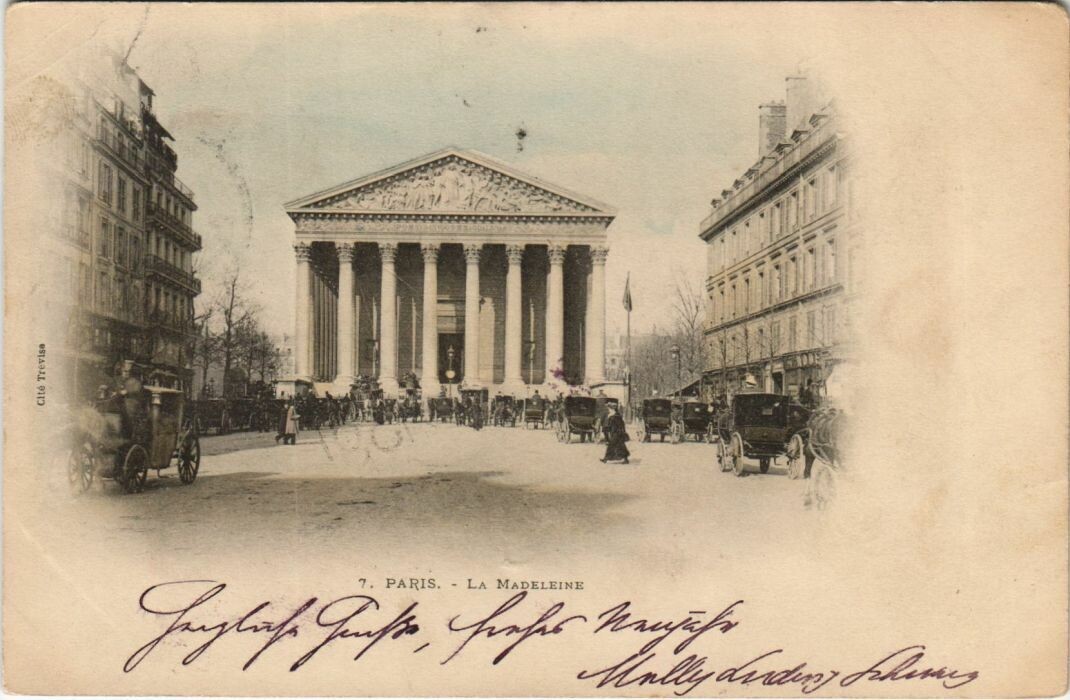 Cité Trévise
7. PARIS. - LA MADELEINE
Herzliche Grüße, frohes Neujahr
Molly